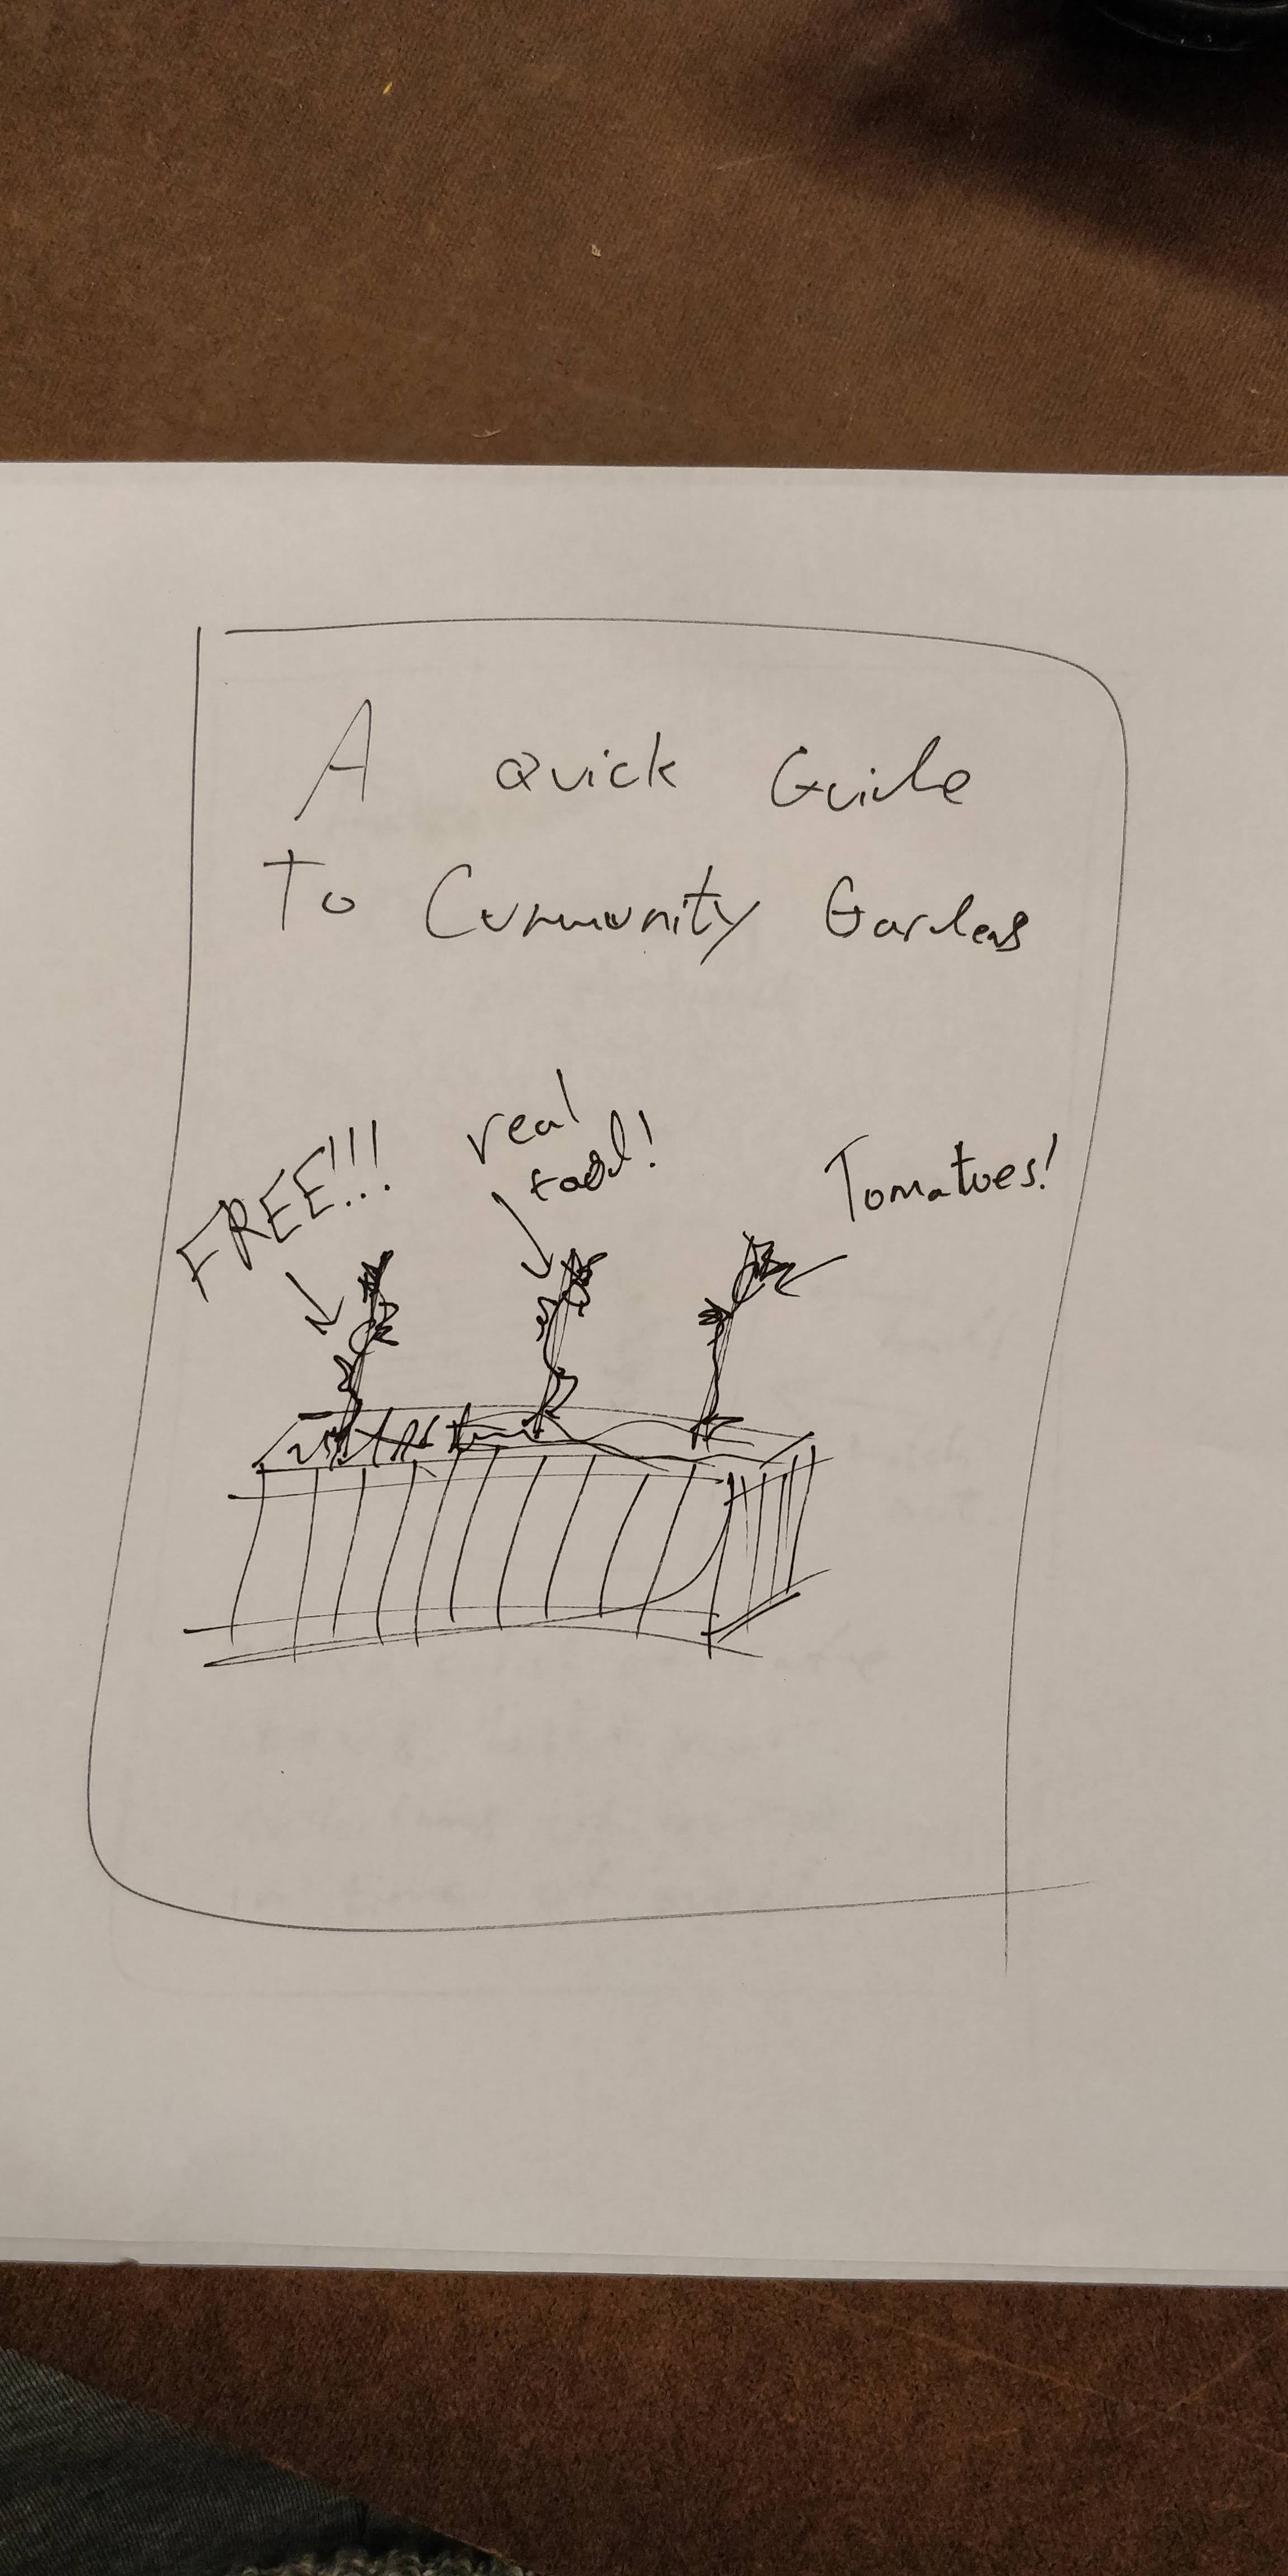 A Quick Guide
To Community Gardens
FREE!!!
real
food!
Tomatoes!